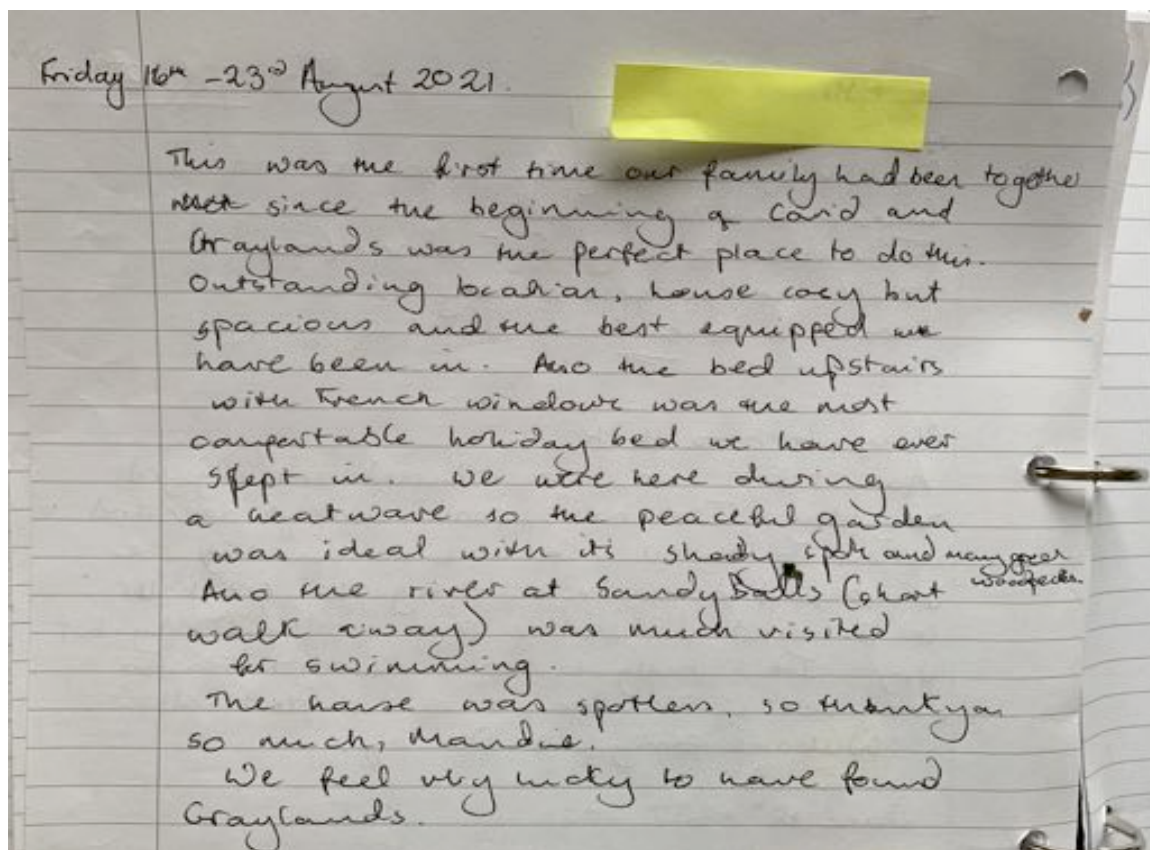 Friday 16th - 23rd August 2021.
This was the first time our family had been togethe
since the beginning of Covid and
Graylands was the perfect place to do this.
Outstanding location, house cosy but
spacious and the best equipped we
have been in. Also the bed upstairs
with French windows was the most
comfortable holiday bed we have ever
slept in. We were here during
a heatwave so the peaceful garden
was ideal with its shady spots and many green
woodpeckers.
Also the river at Sandy Balls (short
walk away) was much visited
for swimming.
The house was spotless, so thank you
so much, Mandie.
We feel very lucky to have found
Graylands.